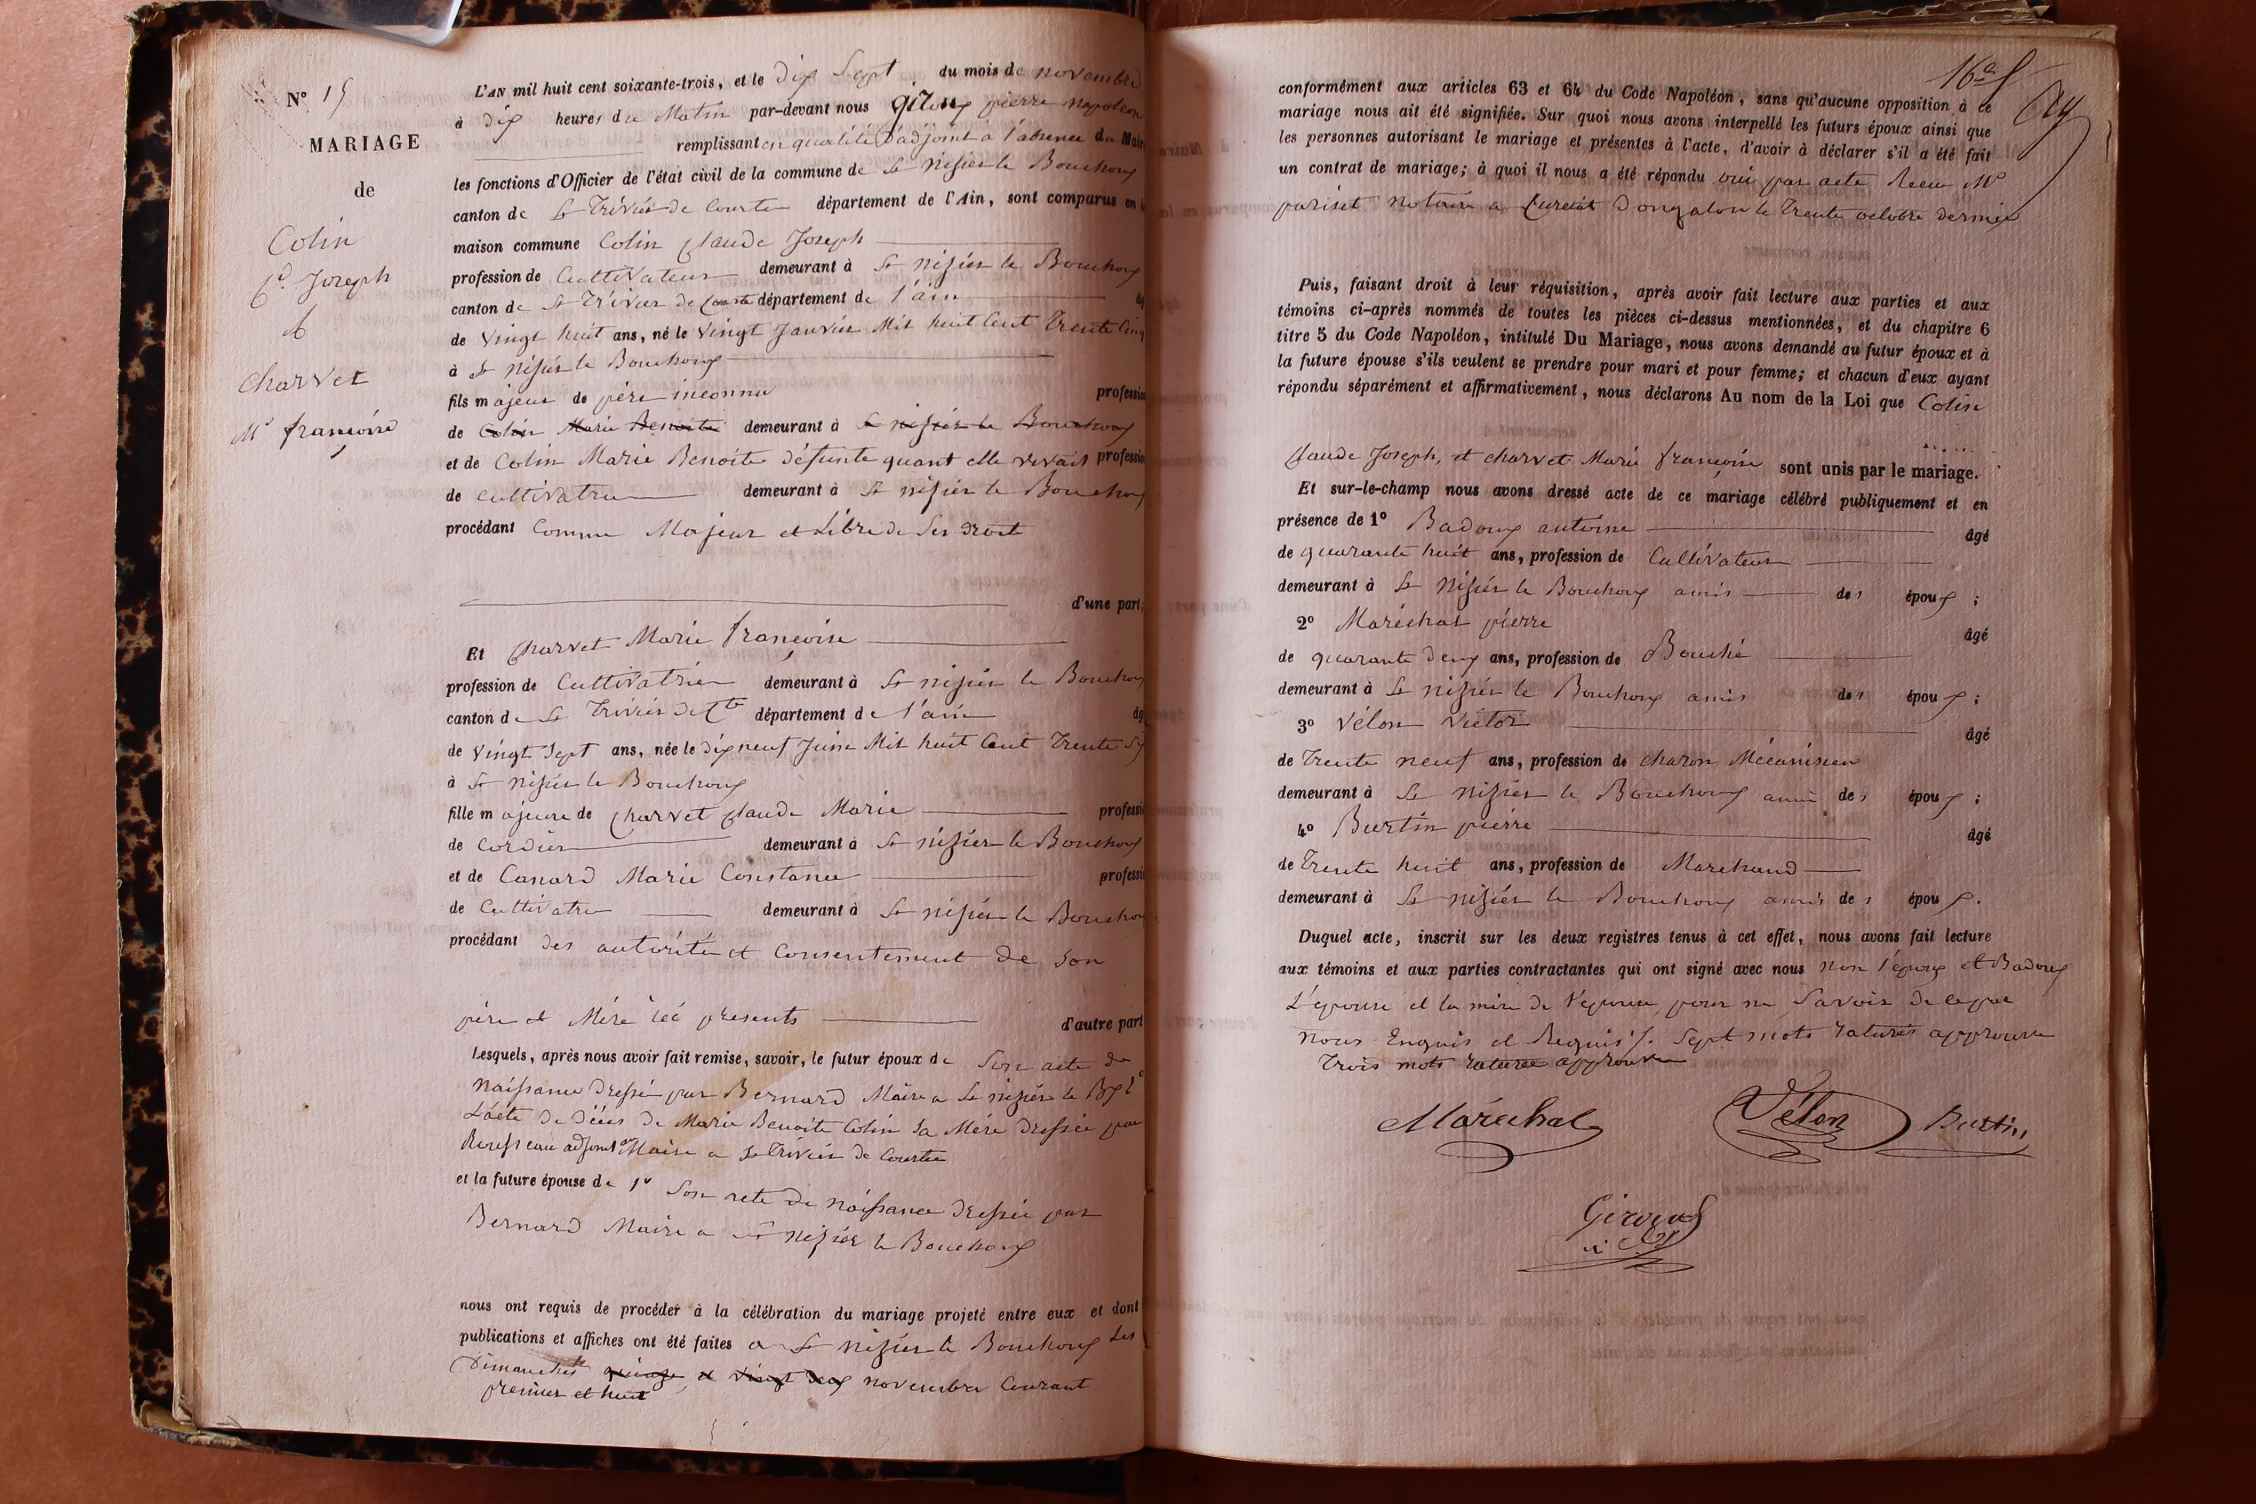 N° 15
MARIAGE
de
Colin
Cde Joseph
&
Charvet
Mie françoise
L'AN mil huit cent soixante-trois, et le dix Sept du mois de novembre
à dix heures du Matin par-devant nous pierre napoleon
remplissant en qualité d'adjoint a l'absence du Maire
les fonctions d'Officier de l'état civil de la commune de St nizier le Bouchoux
canton de St Trivier de Courtes département de l'Ain, sont comparus en la
maison commune Colin Claude Joseph
profession de Cultivateur demeurant à St nizier le Bouchoux
canton de St Trivier de Courte département de l'ain âgé
de vingt huit ans, né le vingt Janvier Mil huit Cent Trente Cinq
à St nizier le Bouchoux
fils majeur de père inconnu profession
de Colin Marie Benoite demeurant à St nizier le Bouchoux
et de Colin Marie Benoite défunte quant elle vivait profession
de cultivatrice demeurant à St nizier le Bouchoux
procédant Comme Majeur et Libre de Ses droit
d'une part;
Et Charvet Marie françoise
profession de Cultivatrice demeurant à St nizier le Bouchoux
canton de St Trivier de Cte département de l'ain âgé
de vingt Sept ans, née le dix neuf Juin Mil huit Cent Trente Six
à St nizier le Bouchoux
fille majeure de Charvet Claude Marie profession
de Cordier demeurant à St nizier le Bouchoux
et de Canard Marie Constance profession
de Cultivatrice demeurant à St nizier le Bouchoux
procédant des autorité et Consentement de Son
père et Mère ici présents d'autre part
Lesquels, après nous avoir fait remise, savoir, le futur époux de Son acte de
naissance dressé par Bernard Maire a St nizier le Bx 2°
L'acte de décès de Marie Benoite Colin Sa Mère dressée par
adjoint au Maire a St Trivier de Courtes
et la future épouse de 1° Son acte de naissance dressée par
Bernard Maire a St nizier le Bouchoux
nous ont requis de procéder à la célébration du mariage projeté entre eux et dont
publications et affiches ont été faites a St nizier le Bouchoux Les
Dimanches quinze et vingt deux novembre Courant
premier et huit
16e
conformément aux articles 63 et 64 du Code Napoléon, sans qu'aucune opposition à ce
mariage nous ait été signifiée. Sur quoi nous avons interpellé les futurs époux ainsi que
les personnes autorisant le mariage et présentes à l'acte, d'avoir à déclarer s'il a été fait
un contrat de mariage; à quoi il nous a été répondu oui par acte Recu Me
pariset notaire a Curciat Dongalon le Trente octobre dernier
Puis, faisant droit à leur réquisition, après avoir fait lecture aux parties et aux
témoins ci-après nommés de toutes les pièces ci-dessus mentionnées, et du chapitre 6
titre 5 du Code Napoléon, intitulé Du Mariage, nous avons demandé au futur époux et à
la future épouse s'ils veulent se prendre pour mari et pour femme; et chacun d'eux ayant
répondu séparément et affirmativement, nous déclarons Au nom de la Loi que Colin
Claude Joseph, et charvet Marie françoise sont unis par le mariage.
Et sur-le-champ nous avons dressé acte de ce mariage célébré publiquement et en
présence de 1° Badoux antoine âgé
de quarante huit ans, profession de Cultivateur
demeurant à St nizier le Bouchoux amis des époux;
2° Maréchal pierre âgé
de quarante deux ans, profession de Bouché
demeurant à St nizier le Bouchoux amis des époux;
3° Vélon Victor âgé
de Trente neuf ans, profession de charon Mécanicien
demeurant à St nizier le Bouchoux ami des époux;
4° Burtin pierre âgé
de Trente huit ans, profession de Marchand
demeurant à St nizier le Bouchoux amis des époux.
Duquel acte, inscrit sur les deux registres tenus à cet effet, nous avons fait lecture
aux témoins et aux parties contractantes qui ont signé avec nous non l'époux et Badoux
L'épouse et la mère de l'épouse pour ne Savoir de ce par
nous Enquis et Requis. Sept mots raturés approuvé
Trois mots raturés approuvé
Maréchal
Vélon
Burtin